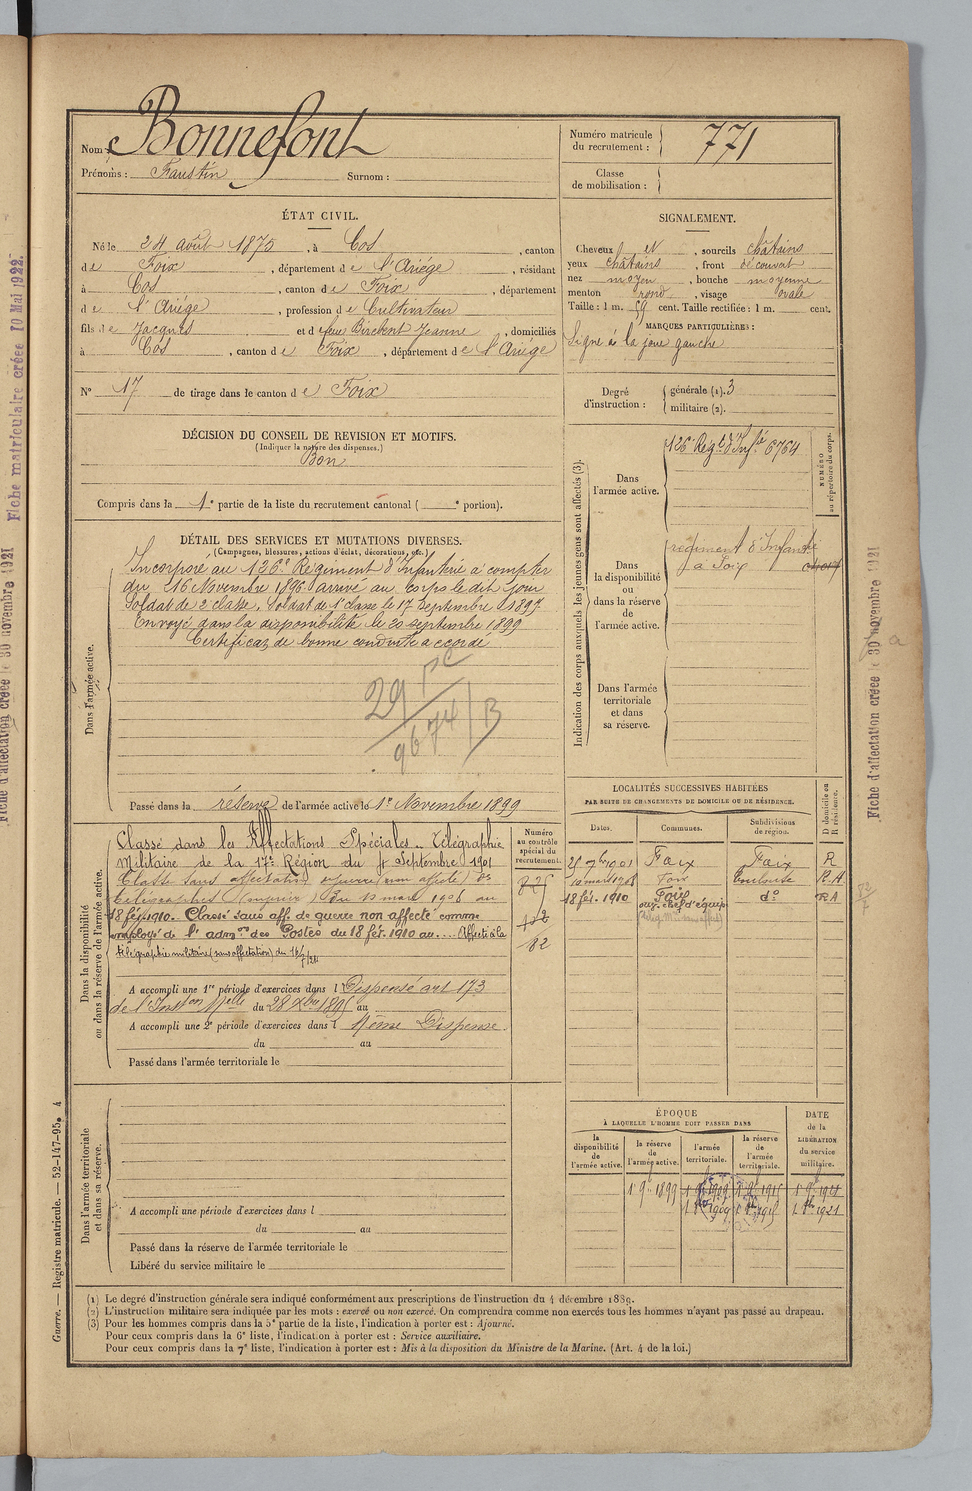 Nom : Bonnefont
Prénoms : Faustin Surnom :
Numéro matricule du recrutement : 771
Classe de mobilisation :
ÉTAT CIVIL.
Né le 24 Août 1875, à Cos, canton
de Foix, département de l'Ariége, résidant
à Cos, canton de Foix, département
de l'Ariége, profession de Cultivateur
fils de Jacques et de feue Birebent Jeanne, domiciliés
à Cos, canton de Foix, département de l'Ariége
N° 17 de tirage dans le canton de Foix
SIGNALEMENT.
Cheveux et, sourcils châtains
yeux châtains, front découvert
nez moyen, bouche moyenne
menton rond, visage ovale
Taille : 1 m. 59 cent. Taille rectifiée : 1 m. cent.
MARQUES PARTICULIÈRES :
Signe à la joue gauche
Degré d'instruction : générale (1). 3
militaire (2).
DÉCISION DU CONSEIL DE REVISION ET MOTIFS.
(Indiquer la nature des dispenses.)
Bon
Compris dans la 1e partie de la liste du recrutement cantonal ( e portion).
DÉTAIL DES SERVICES ET MUTATIONS DIVERSES.
(Campagnes, blessures, actions d'éclat, décorations, etc.)
Dans l'armée active.
Incorporé au 126e Régiment d'Infanterie à compter
du 16 Novembre 1896 arrivé au corps le dit jour
Soldat de 2 classe. Soldat de 1 classe le 17 Septembre 1897
Envoyé dans la disponibilité le 20 septembre 1899
Certificat de bonne conduite accordé
29
9674 B
Passé dans la réserve de l'armée active le 1er Novembre 1899
Indication des corps auxquels les jeunes gens sont affectés (3).
Dans l'armée active.
126 Régt d'Infie 6764
NUMÉRO au répertoire du corps.
Dans la disponibilité ou dans la réserve de l'armée active.
régiment d'Infantie
à Foix
Dans l'armée territoriale et dans sa réserve.
Dans la disponibilité ou dans la réserve de l'armée active.
Classé dans les Affectations Spéciales. Télégraphie
Militaire de la 17e Région du 4 Septembre 1901
18 fév. 1910. Classé sans aff. de guerre non affecté comme
employé de l'admon des Postes du 18 fév. 1910 au.... Affecté à la
télégraphie militaire (sans affectation) du
Numéro au contrôle spécial du recrutement.
82
A accompli une 1re période d'exercices dans l Dispensé art 173
de l'Inston Melle du 28 Xbre 1895 au
A accompli une 2e période d'exercices dans l Même Dispense.
du au
Passé dans l'armée territoriale le
LOCALITÉS SUCCESSIVES HABITÉES
PAR SUITE DE CHANGEMENTS DE DOMICILE OU DE RÉSIDENCE.
Dates. Communes. Subdivisions de région. D domicile ou R résidence.
Foix Foix R
10 mars 1906 Foix Toulouse R.A
18 fév. 1910 Foix do RA
sous chef d'équipe
Dans l'armée territoriale et dans sa réserve.
A accompli une période d'exercices dans l
du au
Passé dans la réserve de l'armée territoriale le
Libéré du service militaire le
ÉPOQUE
À LAQUELLE L'HOMME DOIT PASSER DANS
la disponibilité de l'armée active. la réserve de l'armée active. l'armée territoriale. la réserve de l'armée territoriale. DATE de la LIBÉRATION du service militaire.
1 9e 1899
(1) Le degré d'instruction générale sera indiqué conformément aux prescriptions de l'instruction du 4 décembre 1889.
(2) L'instruction militaire sera indiquée par les mots : exercé ou non exercé. On comprendra comme non exercés tous les hommes n'ayant pas passé au drapeau.
(3) Pour les hommes compris dans la 5e partie de la liste, l'indication à porter est : Ajourné.
Pour ceux compris dans la 6e liste, l'indication à porter est : Service auxiliaire.
Pour ceux compris dans la 7e liste, l'indication à porter est : Mis à la disposition du Ministre de la Marine. (Art. 4 de la loi.)
Guerre. — Registre matricule. — 52-147-95. 4
Fiche matriculaire créée 10 Mai 1922.
Fiche d'affectation créée le 30 novembre 1921
Fiche d'affectation créée le 30 novembre 1921